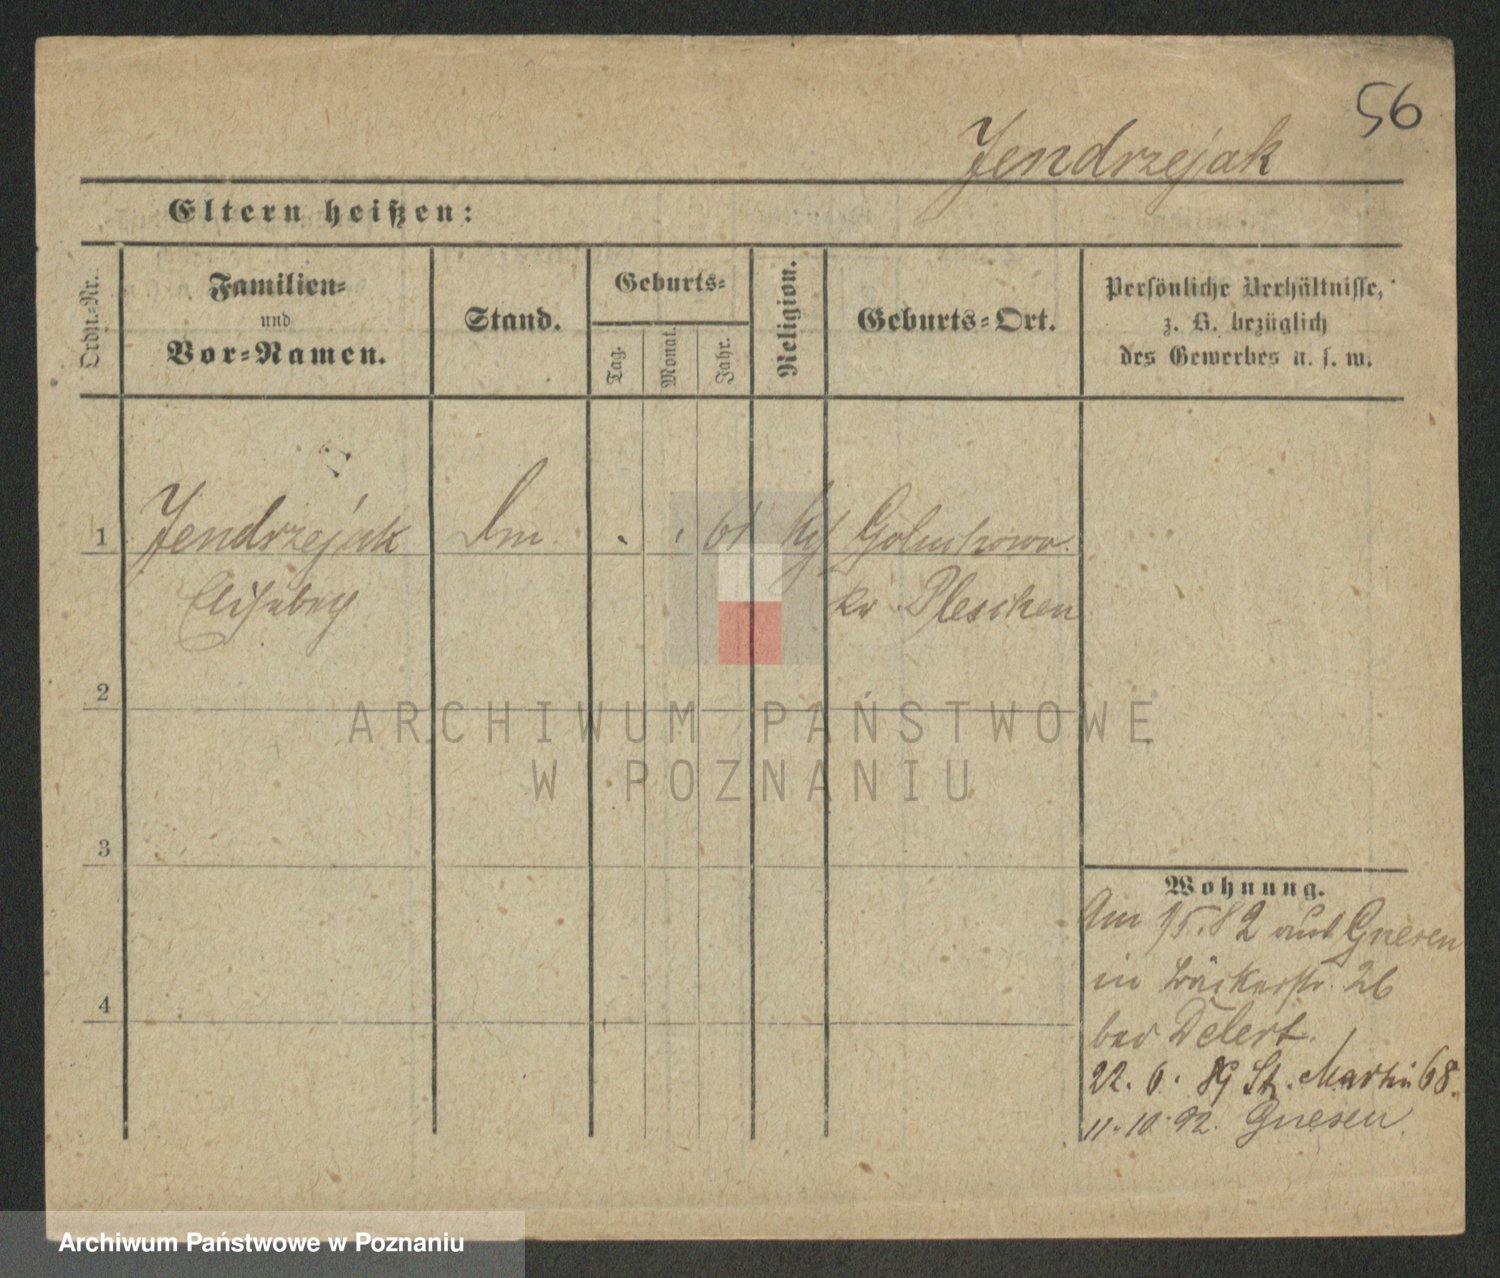 56
Jendrzejak
Eltern heißen:
Ordn.-Nr.
Familien-
und
Vor-Namen.
Stand.
Geburts-
Tag.
Monat.
Jahr.
Religion.
Geburts-Ort.
Persönliche Verhältnisse,
z. B. bezüglich
des Gewerbes u. s. w.
1 Jendrzejak Dm . . 61 Goluchowo.
Kr Pleschen
2
3
4
Wohnung.
Am 1/5.82 aus Gnesen
in Bäckerstr. 26
bei Delert.
22. 6. 89 St. Martin 68.
11. 10. 92. Gnesen.
ARCHIWUM PAŃSTWOWE
W POZNANIU
Archiwum Państwowe w Poznaniu